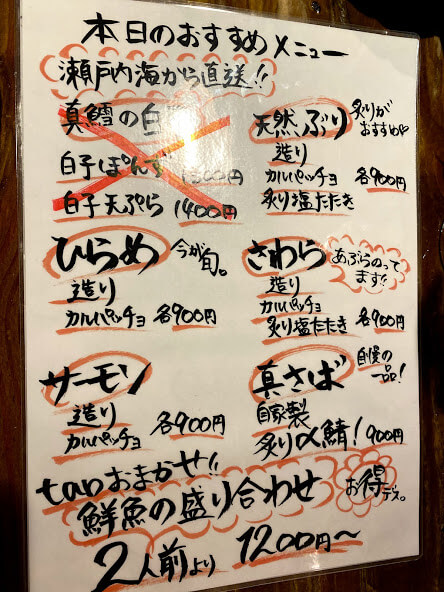 本日のおすすめメニュー
瀬戸内海から直送!!
真鱈の白
白子ぽんず 1300円
白子天ぷら 1400円
天然ぶり 炙りが
おすすめ♡
造り
カルパッチョ 各900円
炙り塩たたき
ひらめ 今が旬。
造り
カルパッチョ 各900円
さわら あぶらのって
ます!!
造り
カルパッチョ
炙り塩たたき 各900円
サーモン
造り
カルパッチョ 各900円
真さば 自慢の
一品!
自家製
炙り〆鯖! 900円
tanおまかせ!!
鮮魚の盛り合わせ
お得デス。
2人前より 1200円〜